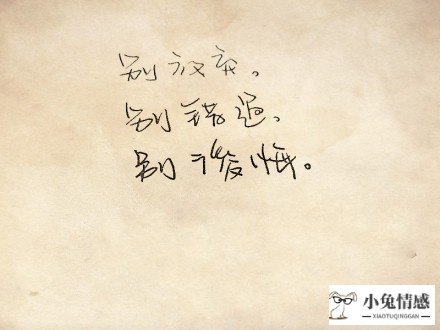 别放弃。
别错过、
别後悔。
小兔情感
XIAOTUQINGGAN